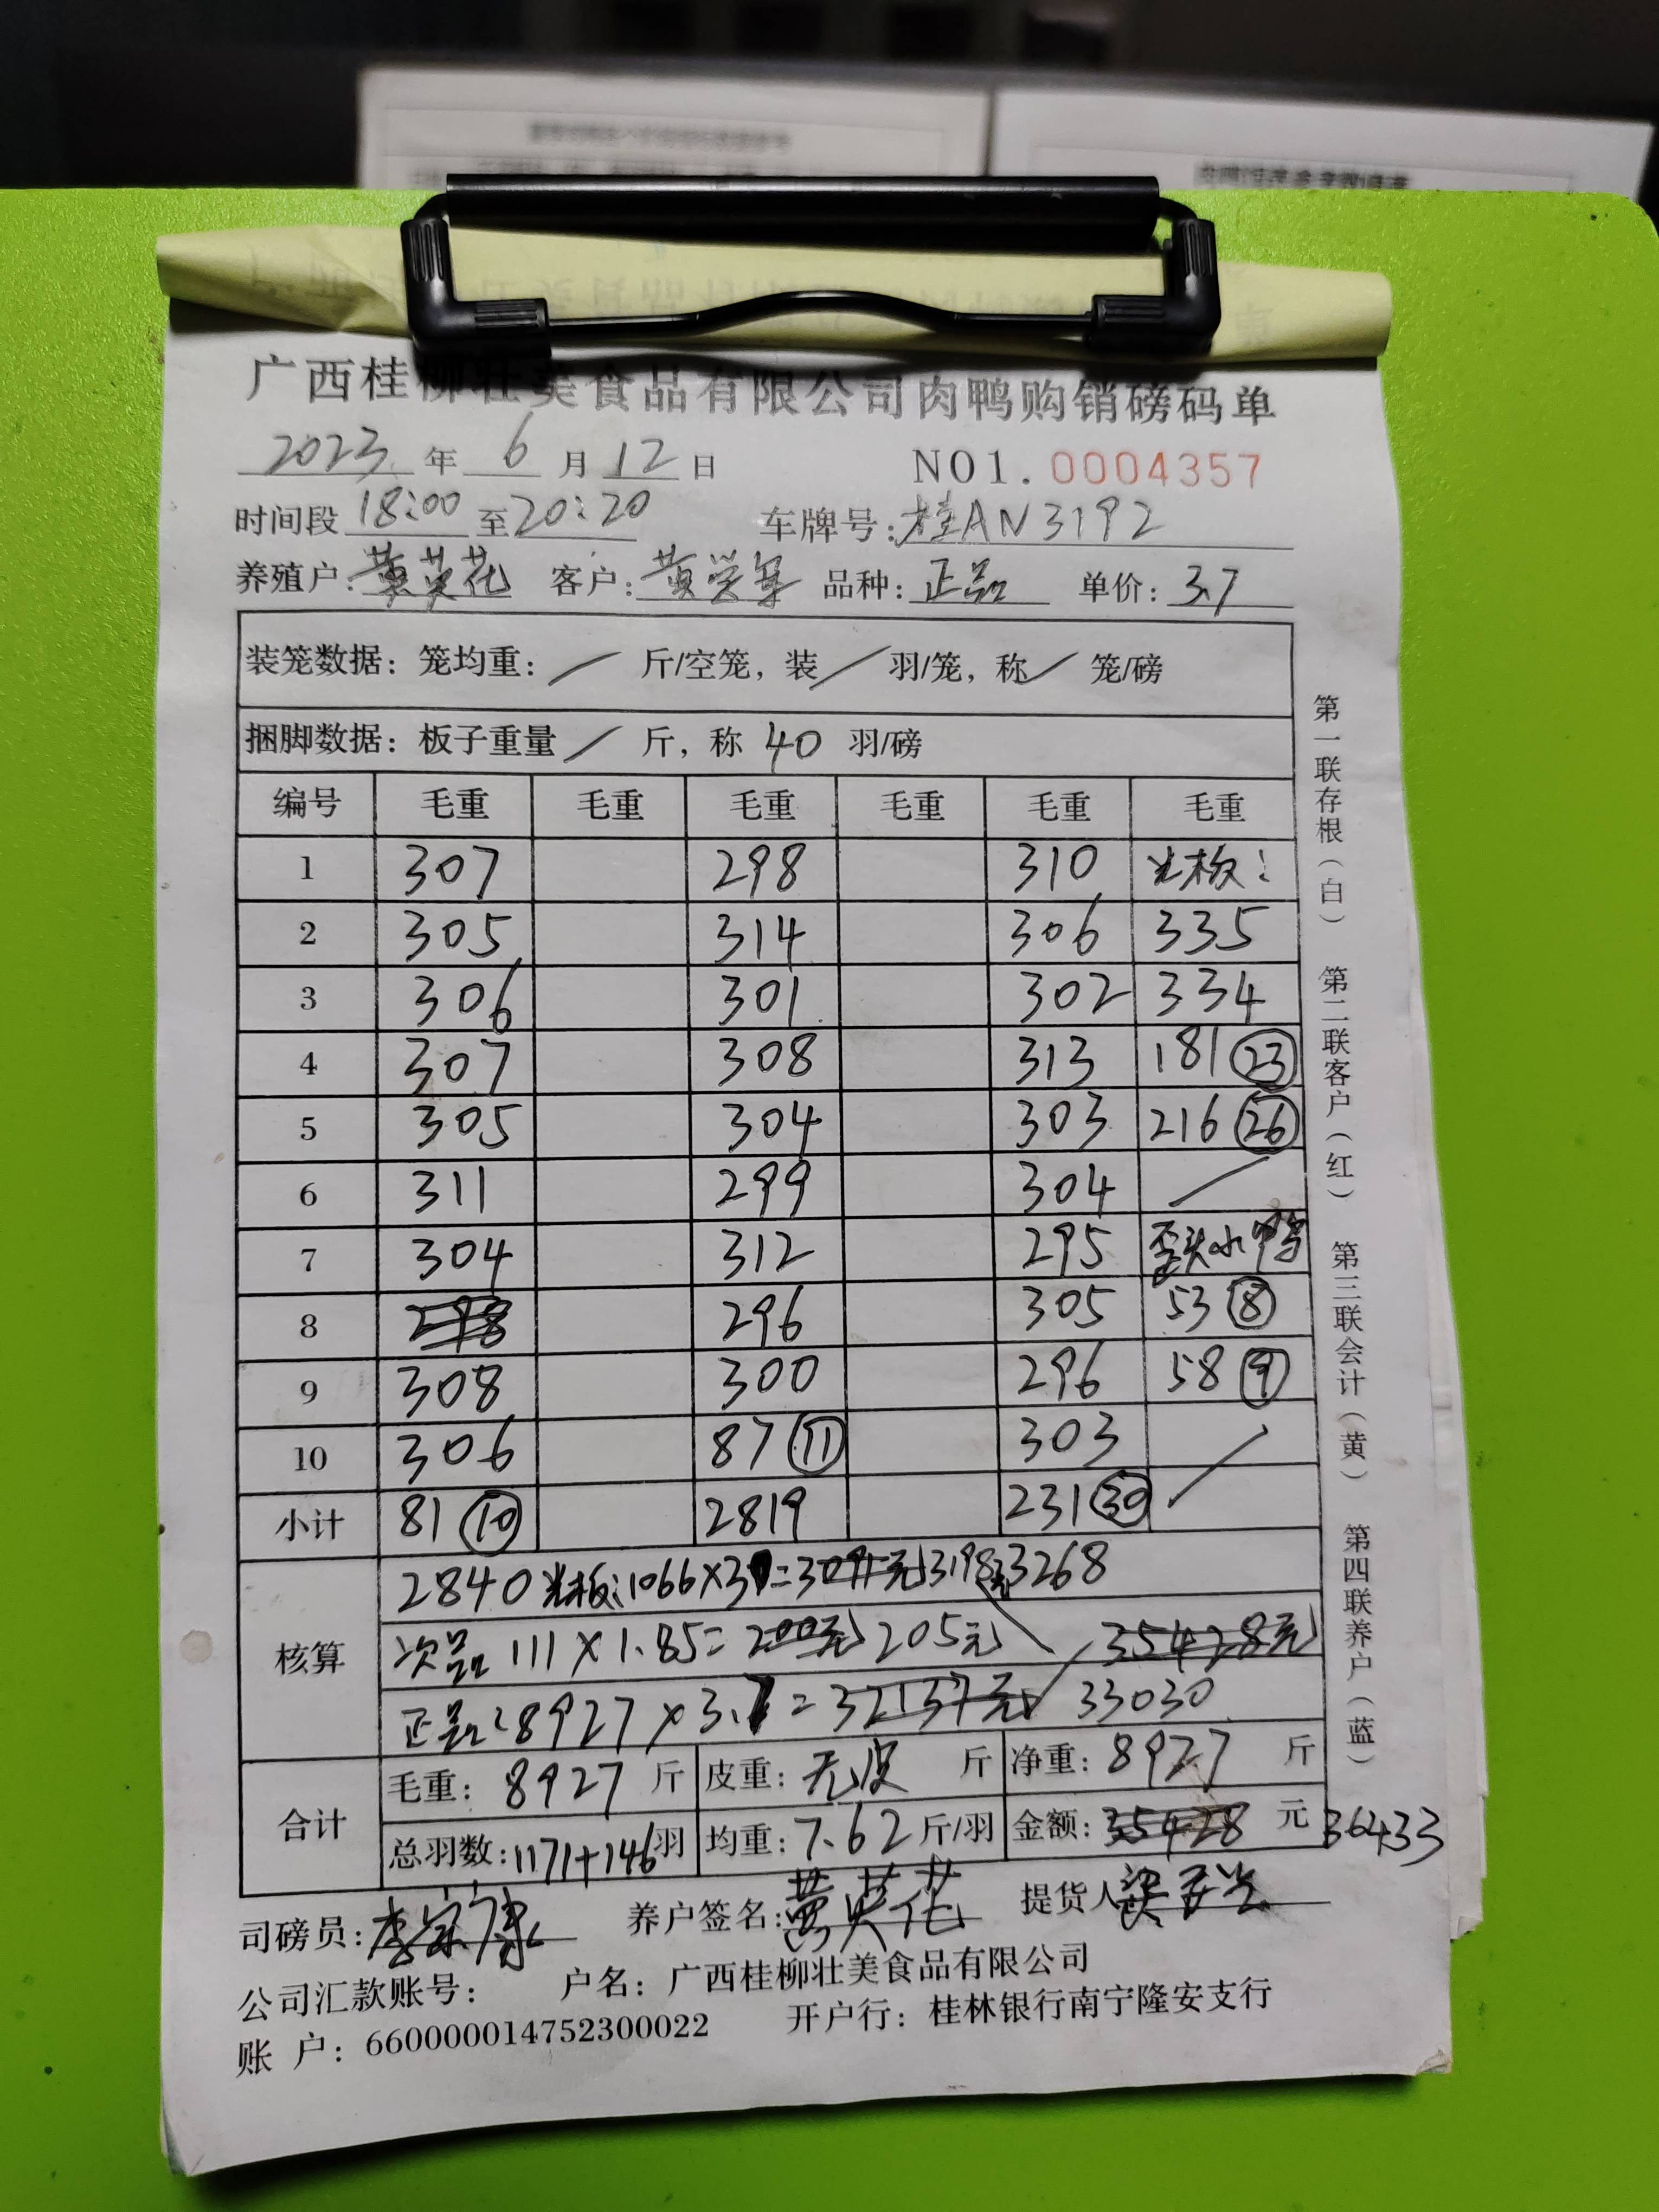 广西桂柳壮美食品有限公司肉鸭购销磅码单
2023 年 6 月 12 日 NO1. 0004357
时间段 18:00 至 20:20 车牌号: 桂AN3192
养殖户: 黄英花 客户: 黄学军 品种: 正品 单价: 3.7
装笼数据: 笼均重: / 斤/空笼, 装 / 羽/笼, 称 / 笼/磅
捆脚数据: 板子重量 / 斤, 称 40 羽/磅
编号 毛重 毛重 毛重 毛重 毛重 毛重
1 307 298 310 光板:
2 305 314 306 335
3 306 301 302 334
4 307 308 313 181 (23)
5 305 304 303 216 (26)
6 311 299 304 /
7 304 312 295 歪头小鸭
8 298 296 305 53 (8)
9 308 300 296 58 (9)
10 306 87 (11) 303
小计 81 (10) 2819 231 (30) /
核算 2840 光板:1066×3 = 元 3198元 3268
次品 111×1.85= 200元 205元 35428元
正品:8927×3.7= 32137元 33030
合计 毛重: 8927 斤 皮重: 无皮 斤 净重: 8927 斤
总羽数: 1171+146 羽 均重: 7.62 斤/羽 金额: 35428 元 36433
司磅员: 李宗康 养户签名: 黄英花 提货人
公司汇款账号: 户名: 广西桂柳壮美食品有限公司
账 户: 660000014752300022 开户行: 桂林银行南宁隆安支行
第一联存根(白) 第二联客户(红) 第三联会计(黄) 第四联养户(蓝)